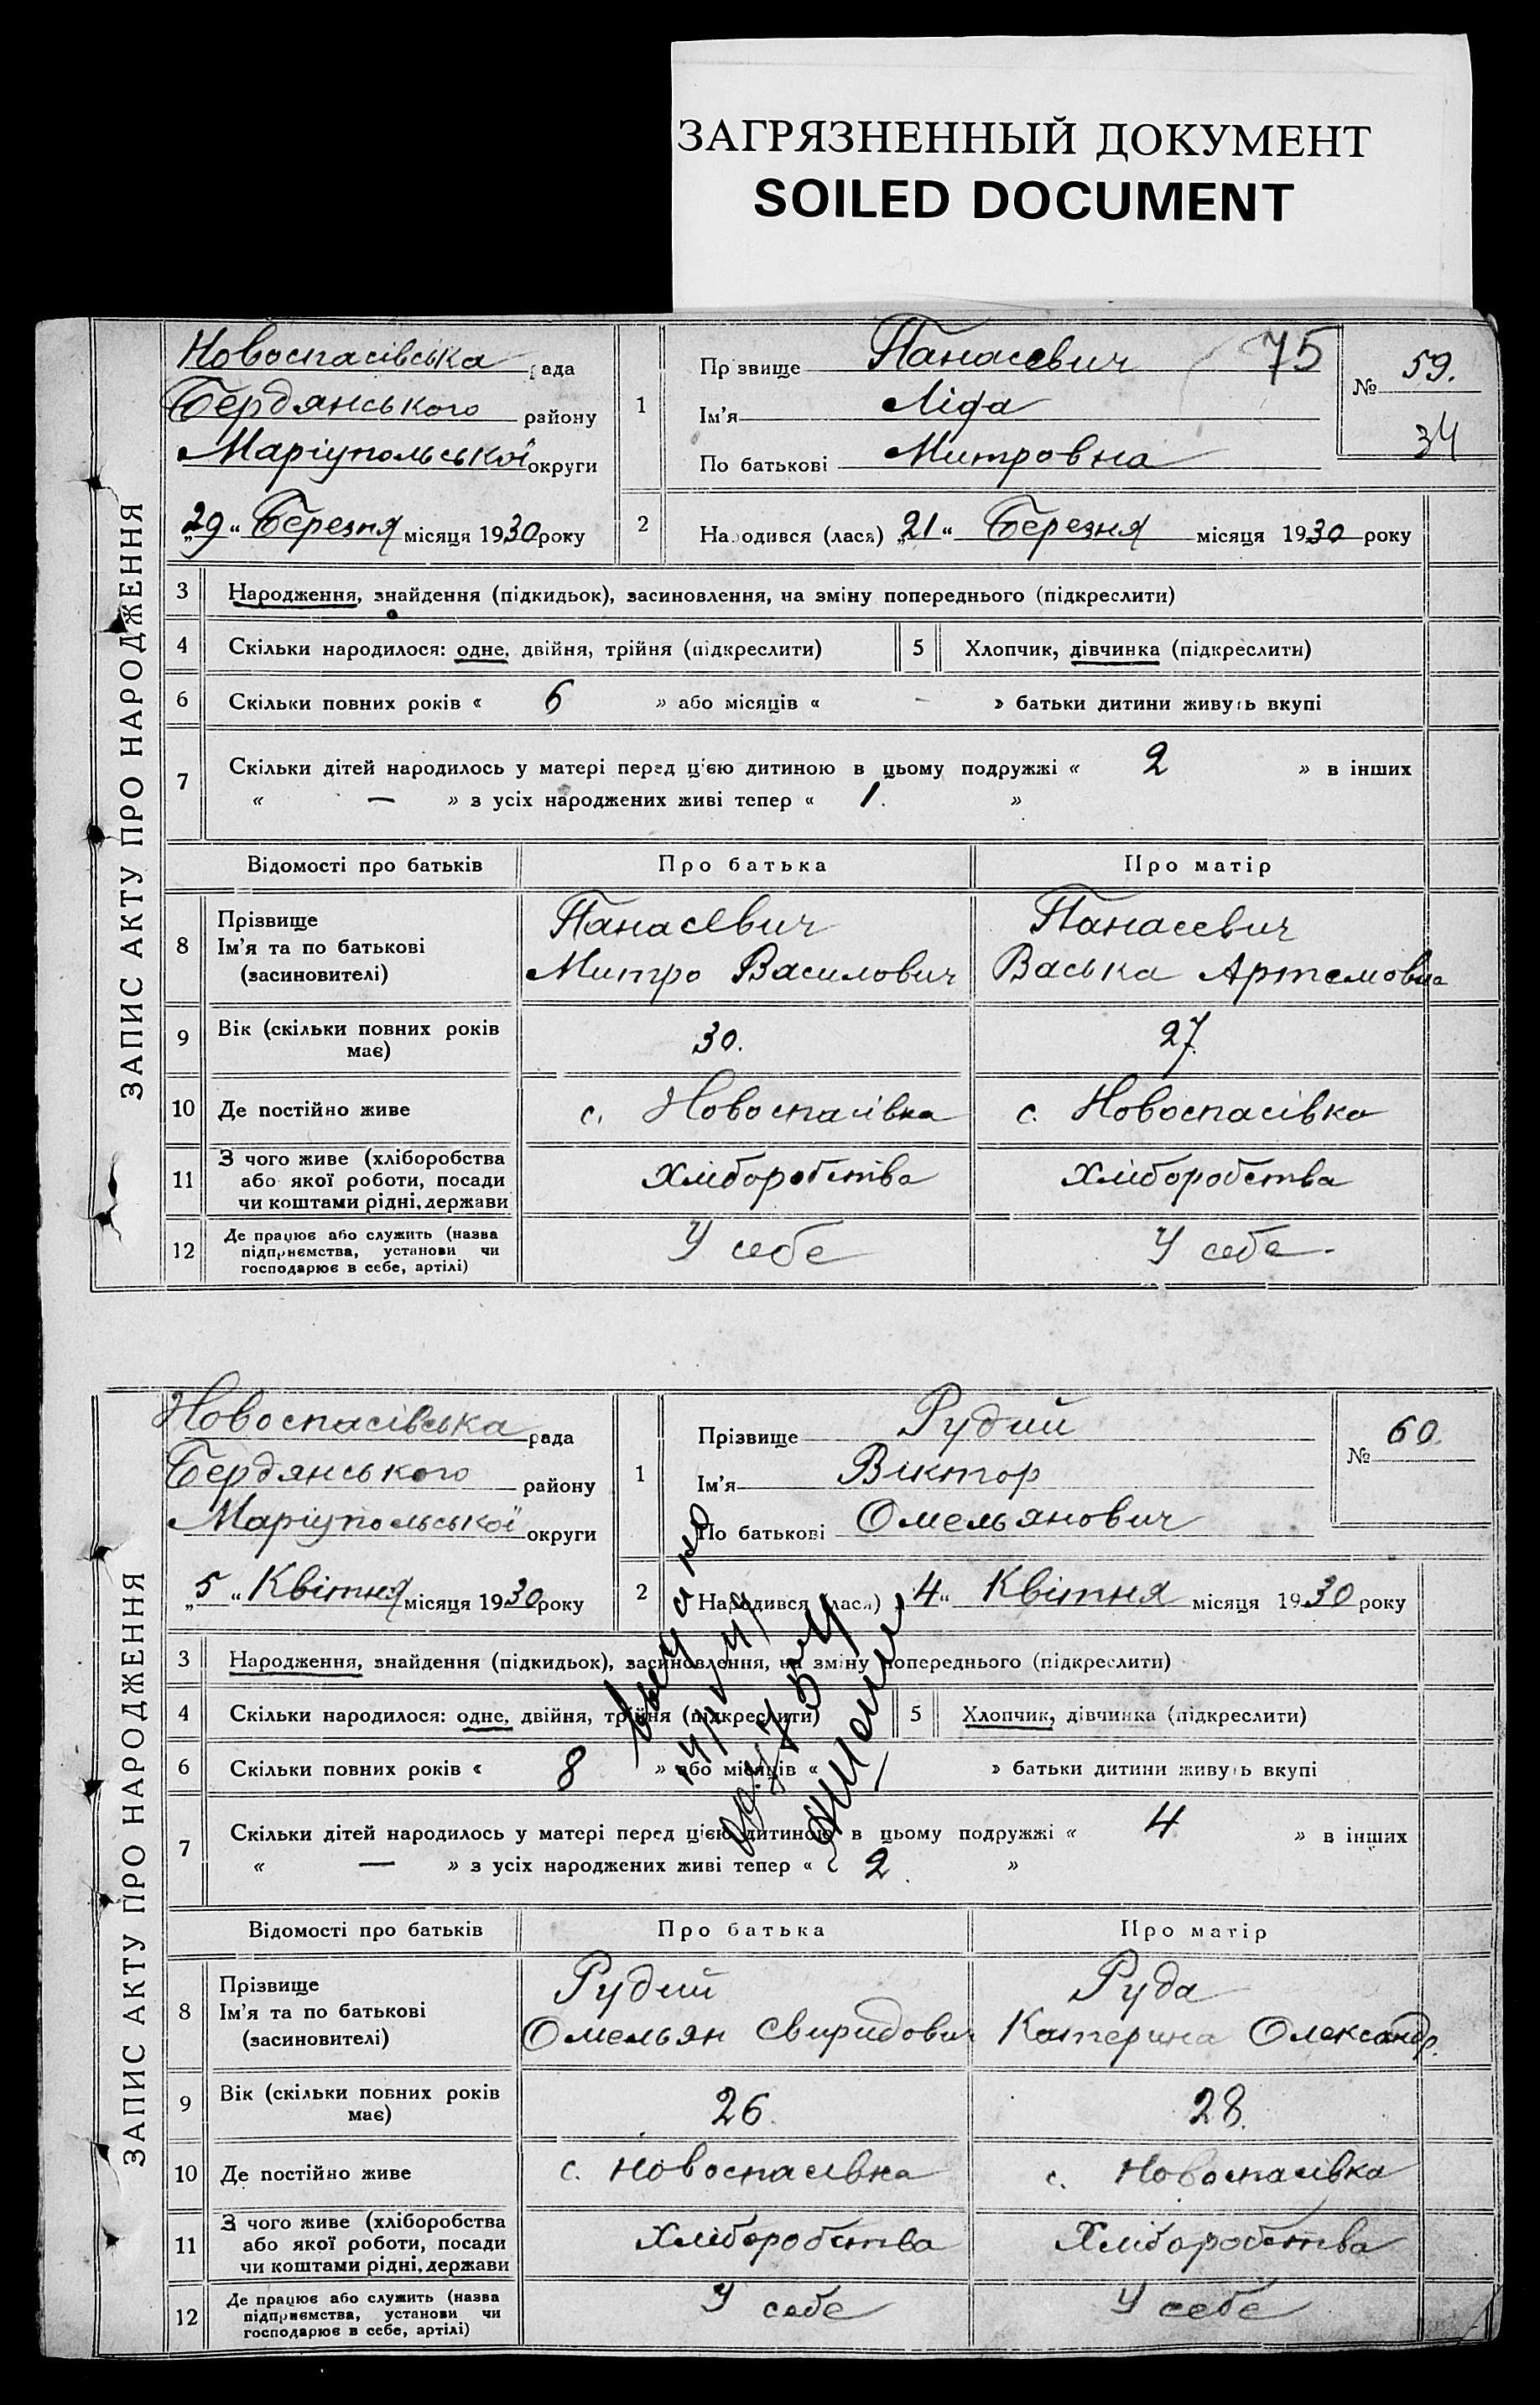 ЗАГРЯЗНЕННЫЙ ДОКУМЕНТ
SOILED DOCUMENT
ЗАПИС АКТУ ПРО НАРОДЖЕННЯ
Новоспасівська рада
Бердянського району
Маріупольської округи
„29“ Березня місяця 1930 року
1
Прізвище Панасевич 75
Ім'я Ліда
По батькові Митровна
№ 59.
34
2 Народився (лася) „21“ Березня місяця 1930 року
3 Народження, знайдення (підкидьок), засиновлення, на зміну попереднього (підкреслити)
4 Скільки народилося: одне, двійня, трійня (підкреслити) 5 Хлопчик, дівчинка (підкреслити)
6 Скільки повних років « 6 » або місяців « - » батьки дитини живуть вкупі
7 Скільки дітей народилось у матері перед цією дитиною в цьому подружжі « 2 » в інших
« — » з усіх народжених живі тепер « 1. »
Відомості про батьків Про батька Про матір
8 Прізвище Панасевич Панасевич
Ім'я та по батькові Митро Василович Васька Артемовна
(засиновителі)
9 Вік (скільки повних років має) 30. 27.
10 Де постійно живе с. Новоспасівка с. Новоспасівка
11 З чого живе (хліборобства Хліборобства Хліборобства
або якої роботи, посади
чи коштами рідні, держави
12 Де працює або служить (назва У себе У себе.
підприємства, установи чи
господарює в себе, артілі)
ЗАПИС АКТУ ПРО НАРОДЖЕННЯ
Новоспасівська рада
Бердянського району
Маріупольської округи
„5“ Квітня місяця 1930 року
1
Прізвище Рудий
Ім'я Віктор
По батькові Омельянович
№ 60.
2 Народився (лася) „4“ Квітня місяця 1930 року
3 Народження, знайдення (підкидьок), засиновлення, на зміну попереднього (підкреслити)
4 Скільки народилося: одне, двійня, трійня (підкреслити) 5 Хлопчик, дівчинка (підкреслити)
6 Скільки повних років « 8 » або місяців « / » батьки дитини живуть вкупі
7 Скільки дітей народилось у матері перед цією дитиною в цьому подружжі « 4 » в інших
« — » з усіх народжених живі тепер « 2. »
Відомості про батьків Про батька Про матір
8 Прізвище Рудий Руда
Ім'я та по батькові Омельян Свиридович Катерина Олександр.
(засиновителі)
9 Вік (скільки повних років має) 26. 28.
10 Де постійно живе с. Новоспасівка с. Новоспасівка
11 З чого живе (хліборобства Хліборобства Хліборобства
або якої роботи, посади
чи коштами рідні, держави
12 Де працює або служить (назва У себе У себе
підприємства, установи чи
господарює в себе, артілі)